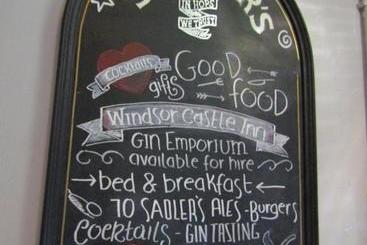 IN HOPS
WE TRUST
COCKTAILS
GOOD
gifts
FOOD
Windsor Castle Inn
GIN EMPORIUM
available for hire
bed & breakfast
10 SADLER'S ALES - Burgers
Cocktails - GIN TASTING